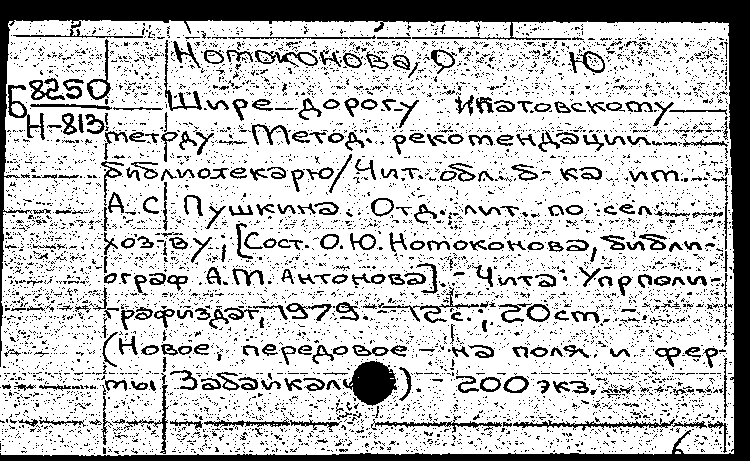 Нотоконова, О Ю
Б 8250
Н-813
Шире дорогу ипатовскому
методу: Метод. рекомендации
библиотекарю/Чит. обл. б-ка им.
А.С Пушкина. Отд. лит. по сел.
хоз-ву; [Сост. О.Ю. Нотоконова, библи-
ограф А.М. Антонова]. - Чита: Упрполи-
графиздат, 1979. - 12с.; 20см. -
(Новое, передовое - на поля и фер-
мы). - 200 экз.